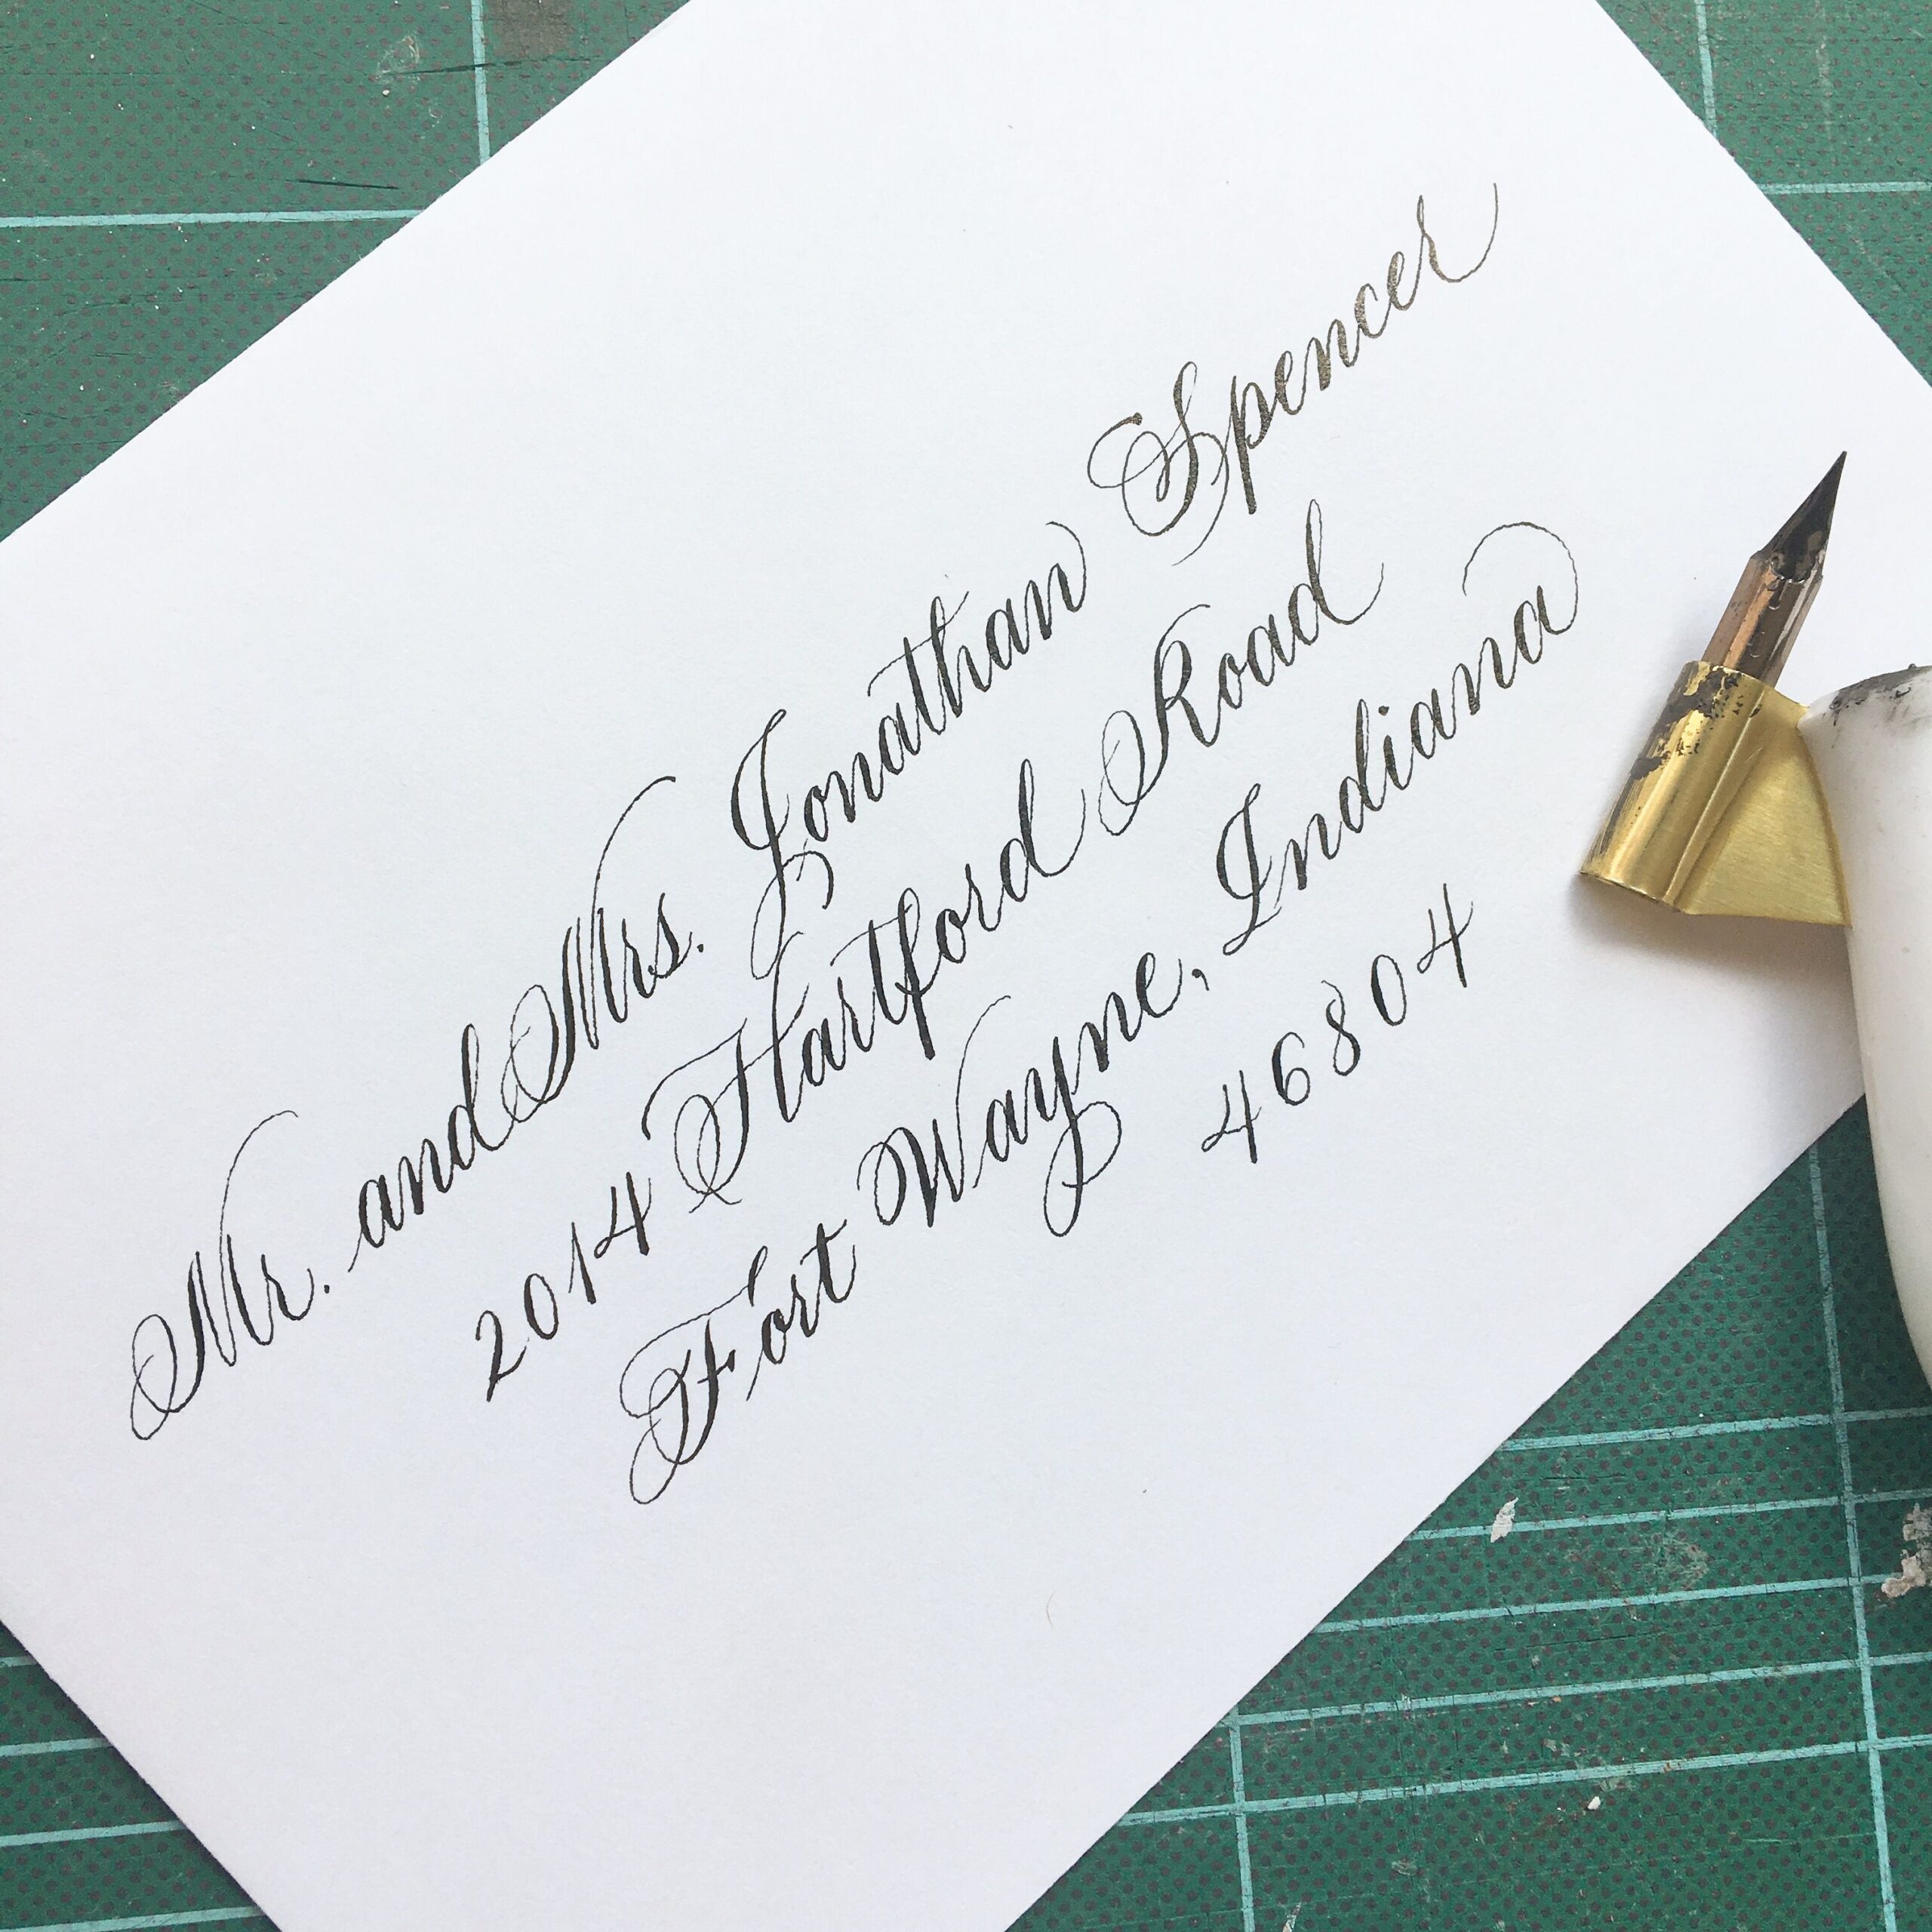 Mr. and Mrs. Jonathan Spencer
2014 Hartford Road
Fort Wayne, Indiana
46804